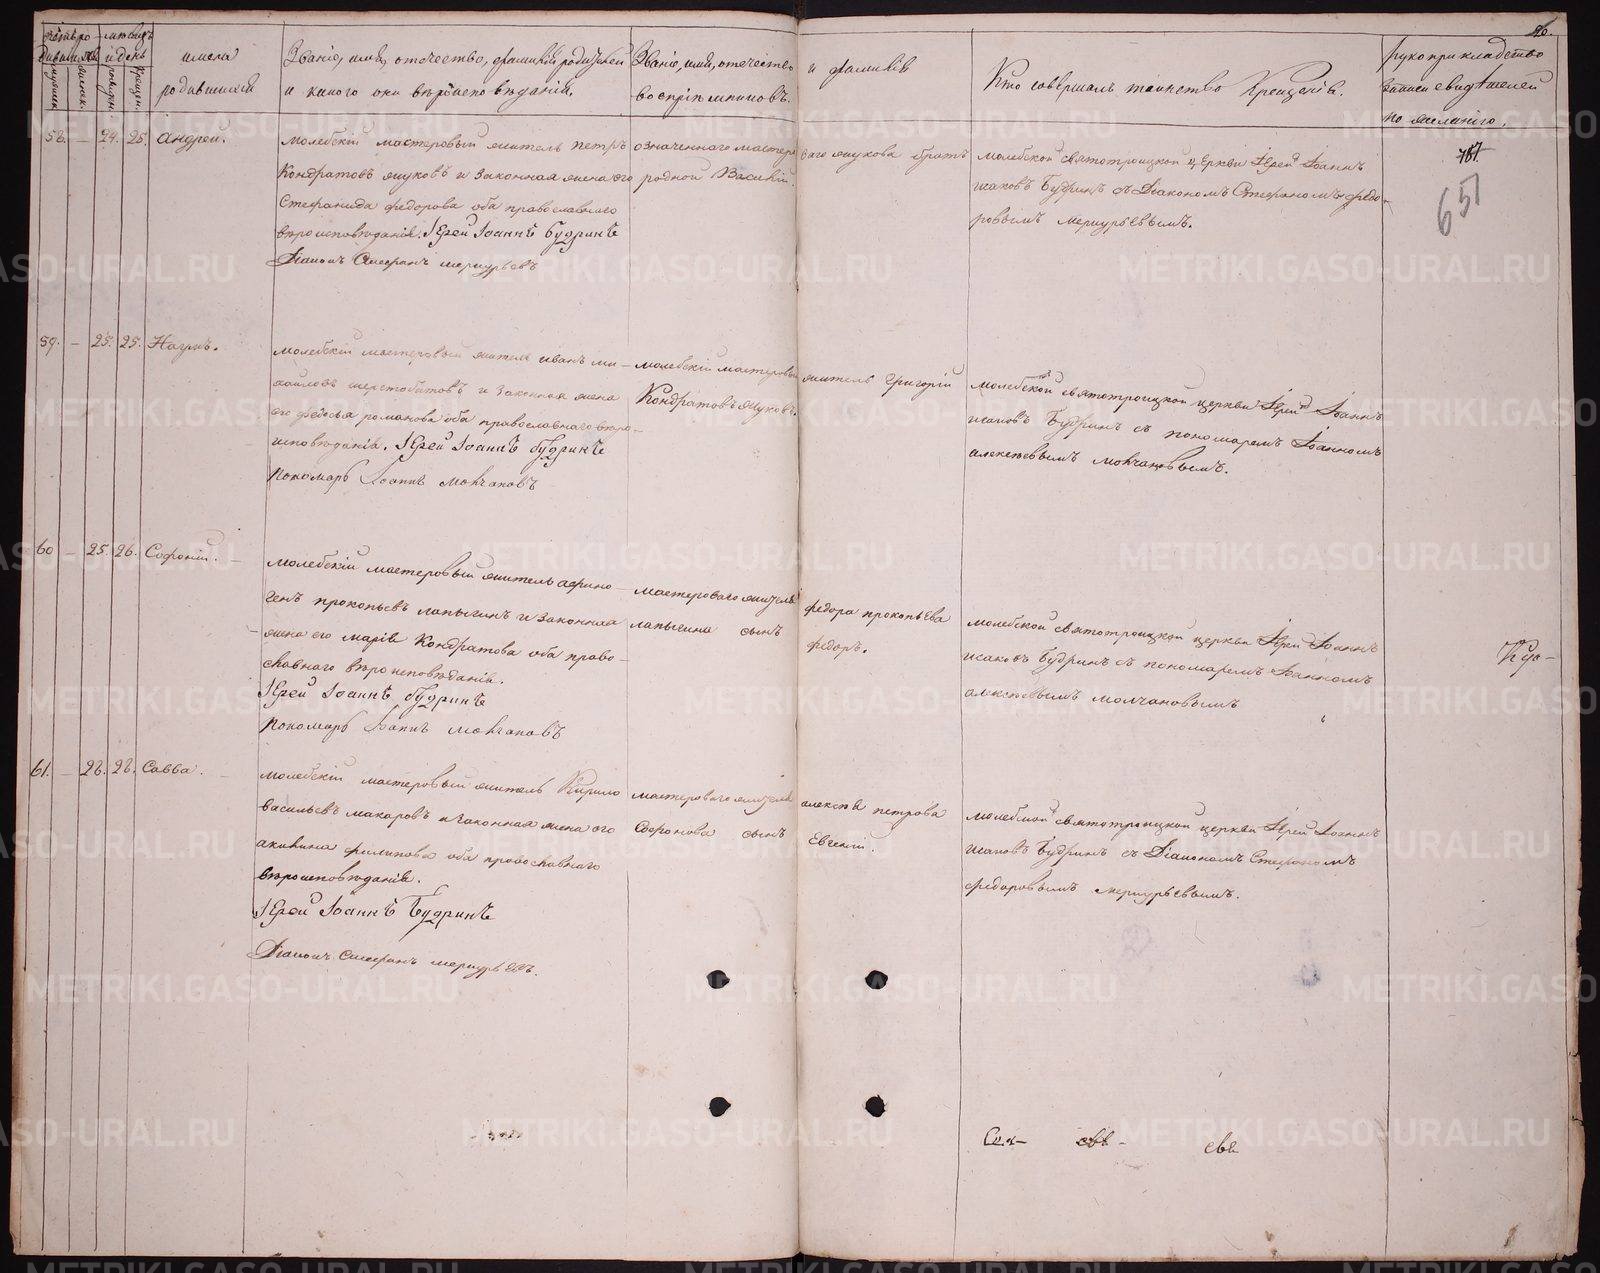 26.
Имена
родившихся
Званіе, имя, отечество, фамилія родителей
и какого они вѣроисповѣданія.
Званіе, имя, отечество
воспріемниковъ.
и фамилія
Кто совершалъ таинство Крещенія.
рукоприкладство
записи свидѣтелей
по желанію.
58. — 24. 25. Андрей.
молебскій мастеровый житель петръ
Кондратовъ жуковъ и законная жена его
Стефанида федорова оба православнаго
вѣроисповѣданія. Іерей Іоаннъ Будринъ
Діаконъ Стефанъ меркурьевъ
означеннаго мастеро
родной Василій.
ваго жукова братъ
молебской святотроицкой церкви Іерей Іоаннъ
исаковъ Будринъ съ Діакономъ Стефаномъ федо-
ровымъ меркурьевымъ.
787.
651
59. — 25. 25. Наумъ.
молебскій мастеровый житель иванъ ми-
хайловъ шерстобитовъ и законная жена
его федосья романова оба православнаго вѣро-
исповѣданія. Іерей Іоаннъ будринъ
пономарь Іоаннъ молчановъ
молебскій мастеровый
Кондратовъ жуковъ.
житель григорій
молебской святотроицкой церкви Іерей Іоаннъ
исаковъ Будринъ съ пономаремъ Іоанномъ
алексѣевымъ молчановымъ.
60 — 25. 26. Софоній.
молебскій мастеровый житель афино-
генъ прокопьевъ лапыгинъ и законная
жена его марія Кондратова оба право-
славнаго вѣроисповѣданія.
Іерей Іоаннъ будринъ
пономарь Іоаннъ молчановъ
мастероваго жителя
лапыгина сынъ
федора прокопьева
федоръ.
молебской святотроицкой церкви Іерей Іоаннъ
исаковъ Будринъ съ пономаремъ Іоанномъ
алексѣевымъ молчановымъ
61. — 26. 28. Савва.
молебскій мастеровый житель Кирило
васильевъ макаровъ и законная жена его
акилина филипова оба православнаго
вѣроисповѣданія.
Іерей Іоаннъ Будринъ
Діаконъ Стефанъ меркурьевъ.
мастероваго жителя
Софонова сынъ
алексѣя петрова
Евгеній.
молебской святотроицкой церкви Іерей Іоаннъ
исаковъ Будринъ съ Діакономъ Стефаномъ
федоровымъ меркурьевымъ.
METRIKI.GASO-URAL.RU